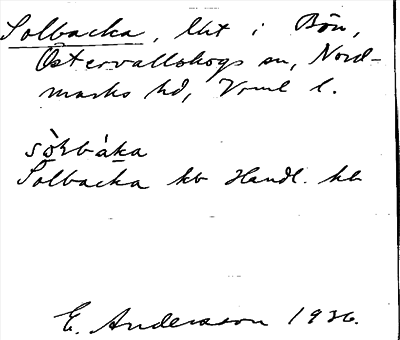 Solbacka, lht i Bön,
Östervallskogs sn, Nord-
marks hd, Vrml l.
sòɫbàka
Solbacka kb Handl. kb
E. Andersson 1936.